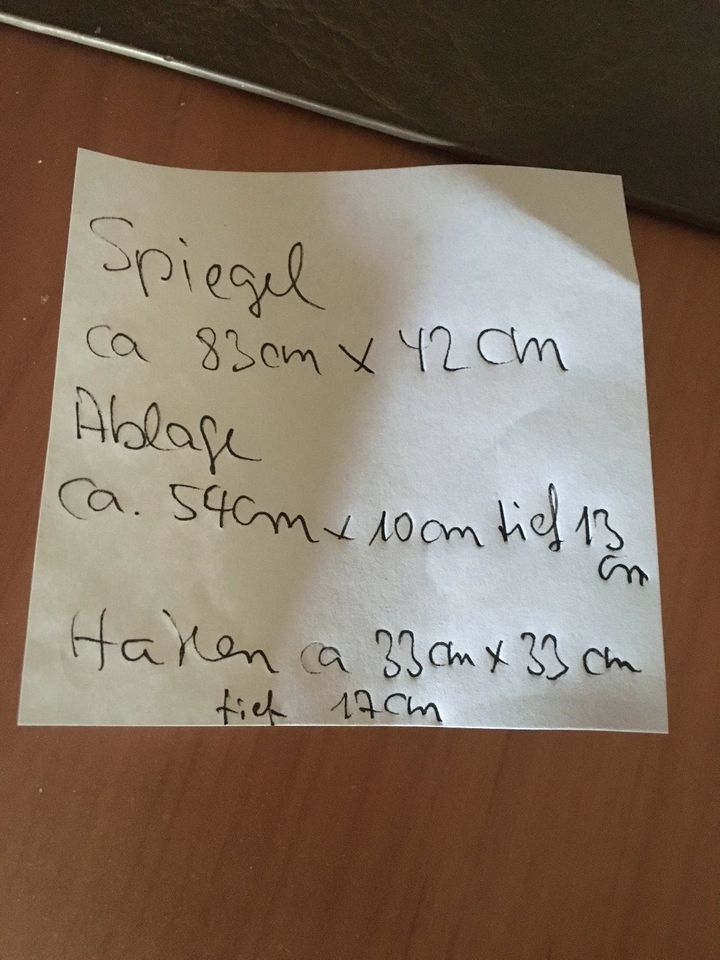 Spiegel
ca 83cm x 42cm
Ablage
ca. 54cm x 10cm tief 13
cm
Haken ca 33cm x 33cm
tief 17cm